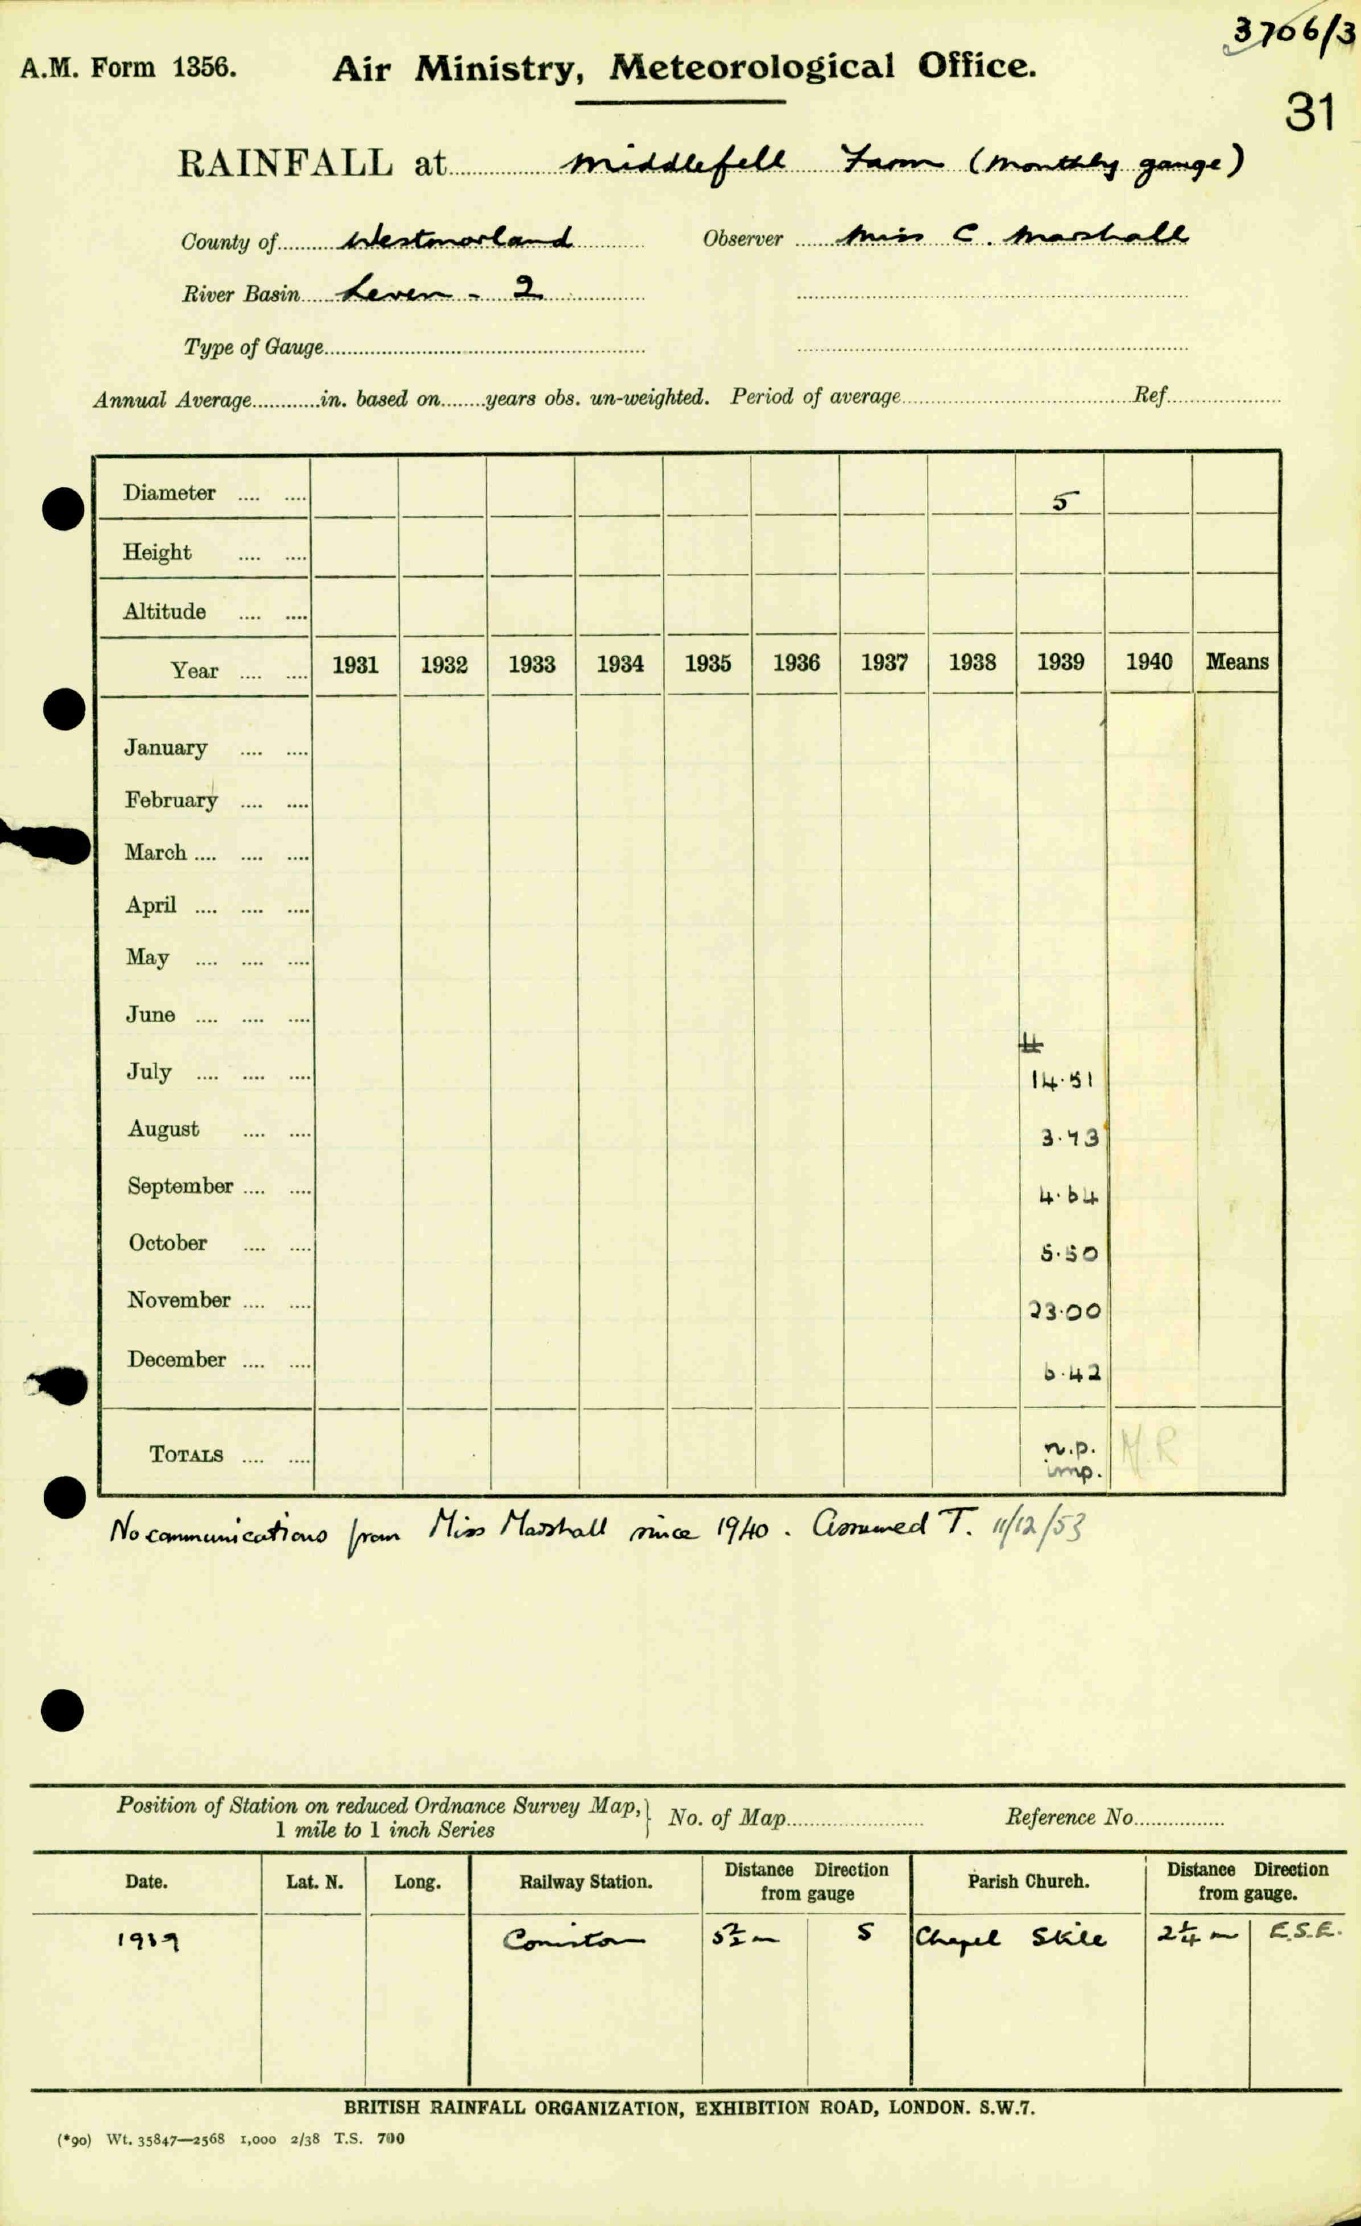 3706/3
A.M. Form 1356. Air Ministry, Meteorological Office.
31
RAINFALL at Middlefell Farm (Monthly gauge)
County of Westmorland Observer Miss C. Marshall
River Basin Leven - 2
Type of Gauge
Annual Average in. based on years obs. un-weighted. Period of average Ref.
Diameter 5
Height
Altitude
Year 1931 1932 1933 1934 1935 1936 1937 1938 1939 1940 Means
January
February
March
April
May
June
July 14.51
August 3.43
September 4.64
October 5.50
November 23.00
December 6.42
TOTALS n.p. N.R
imp.
No communications from Miss Marshall since 1940. Assumed T. 11/12/53
Position of Station on reduced Ordnance Survey Map, } No. of Map Reference No.
1 mile to 1 inch Series
Date. Lat. N. Long. Railway Station. Distance Direction from gauge Parish Church. Distance Direction from gauge.
1939 Coniston S Chapel Stile 2¼ m E.S.E.
BRITISH RAINFALL ORGANIZATION, EXHIBITION ROAD, LONDON. S.W.7.
(*90) Wt. 35847—2568 1,000 2/38 T.S. 700